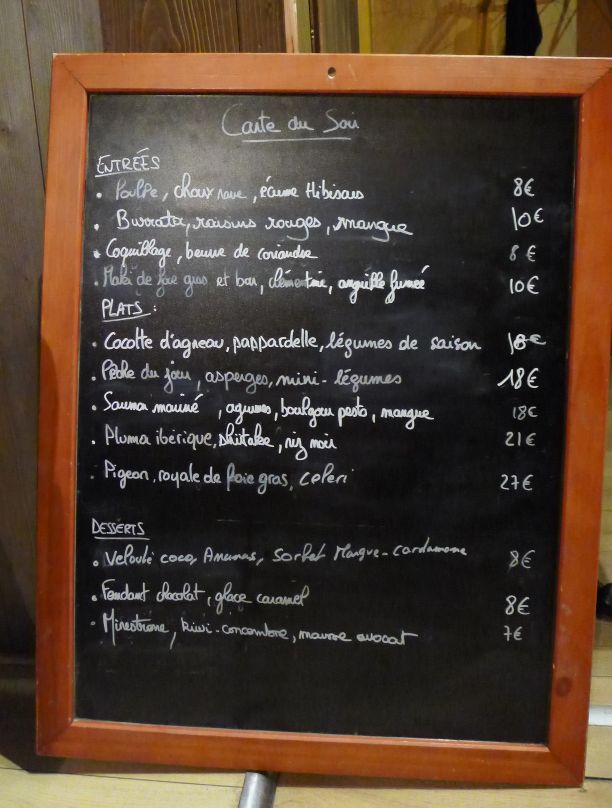 Carte du Soir
ENTRÉES
• Poulpe, choux rave, écume Hibiscus 8€
• Burrata, raisins rouges, mangue 10€
• Coquillage, beurre de coriandre 8€
• de foie gras et bar, clémentine, anguille fumée 10€
PLATS :
• Cocotte d'agneau, pappardelle, légumes de saison 18€
• Pêche du jour, asperges, mini-légumes 18€
• mariné, agrumes, boulgour pesto, mangue 18€
• Pluma ibérique, shiitake, riz noir 21€
• Pigeon, royale de foie gras, celeri 27€
DESSERTS
• Velouté coco, Ananas, Sorbet Mangue-cardamome 8€
• Fondant chocolat, glace caramel 8€
• Minestrone, kiwi-concombre, mousse avocat 7€